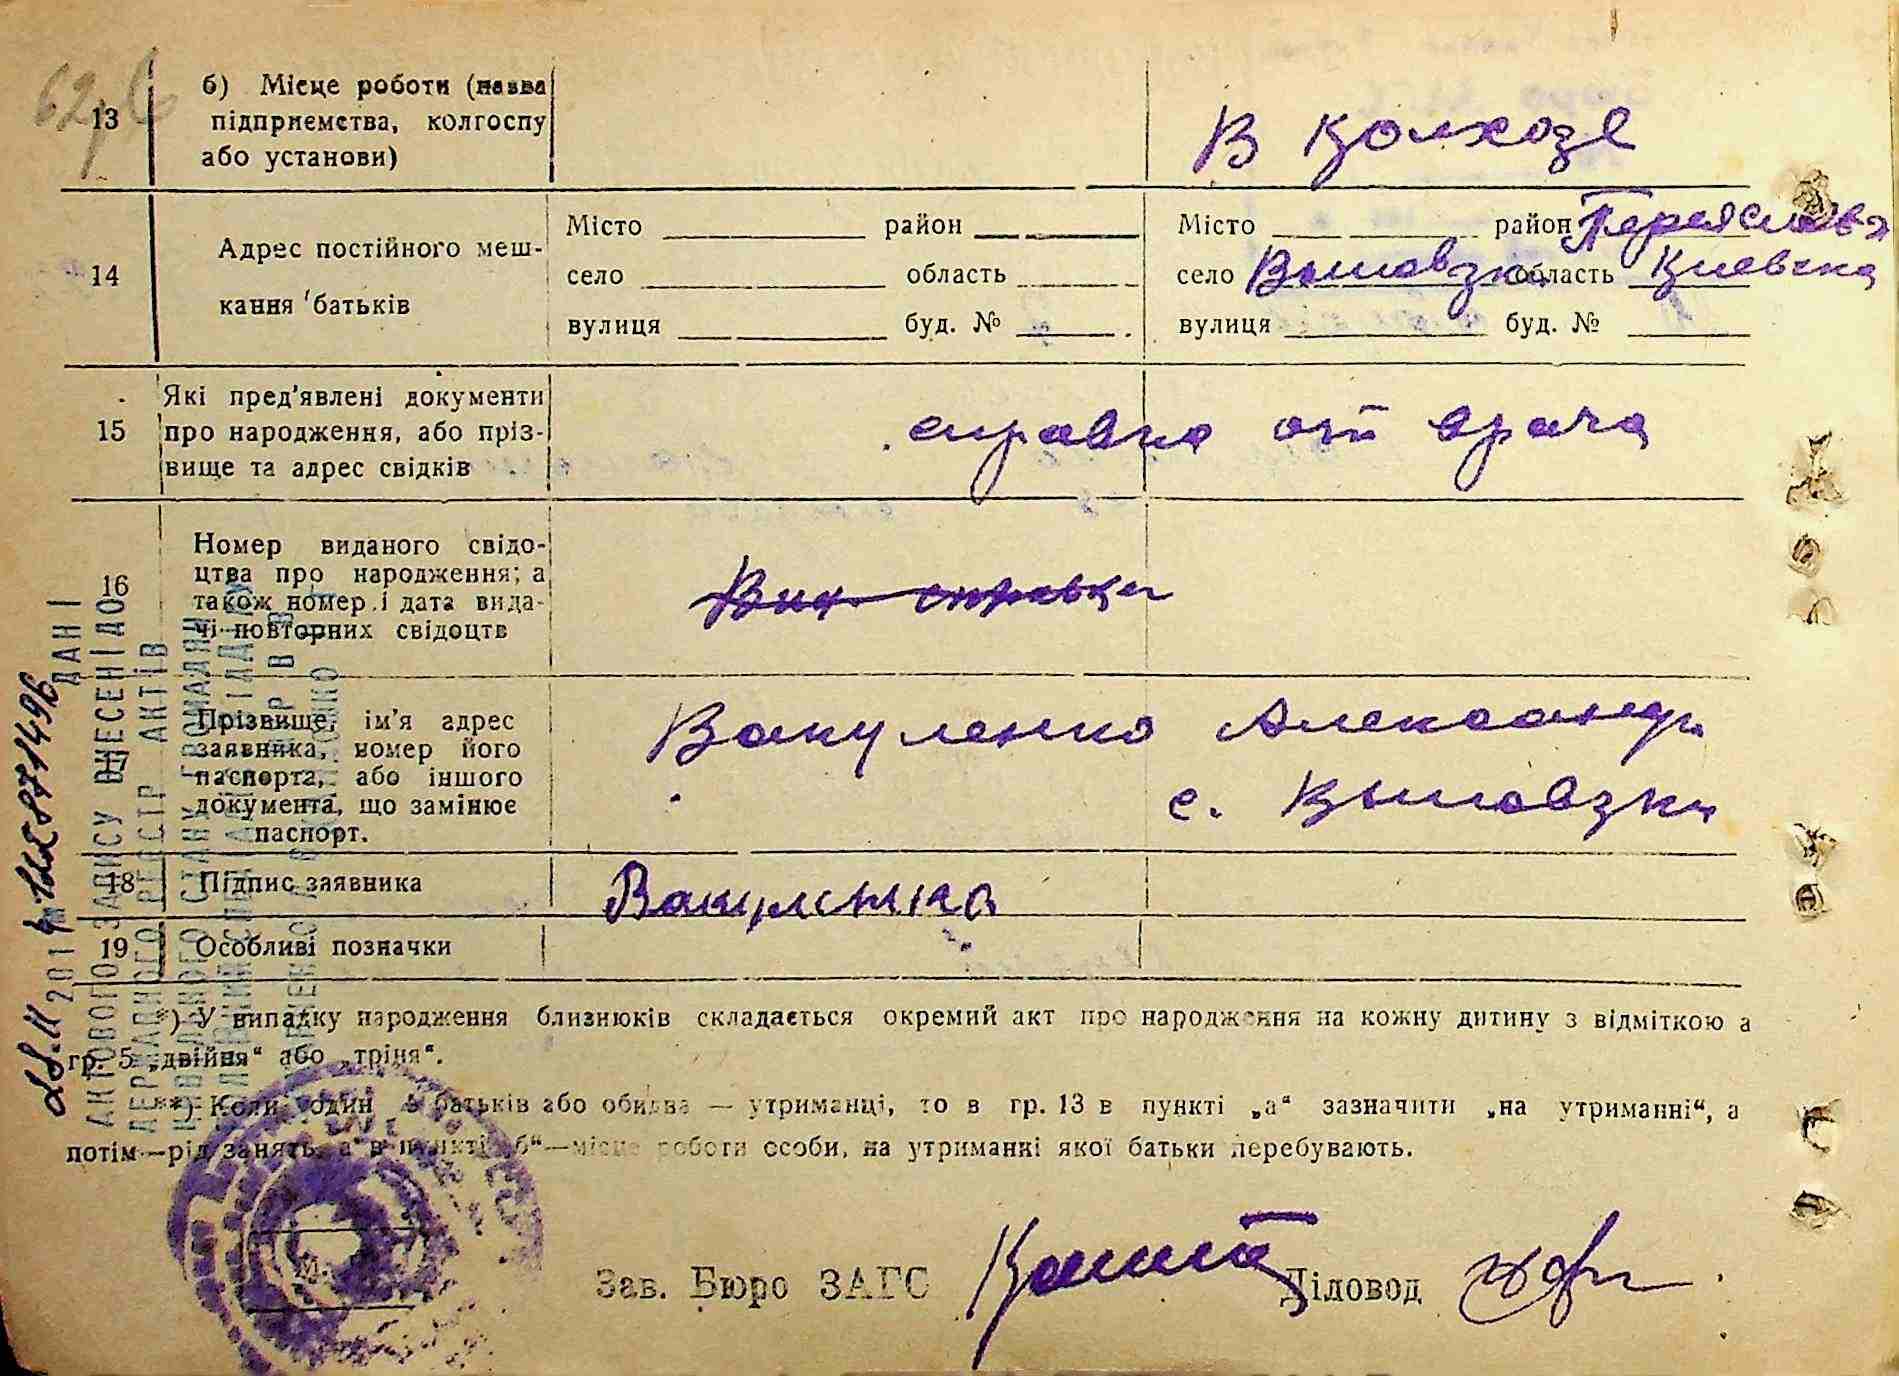 13
б) Місце роботи (назва
підприємства, колгоспу
або установи)
В колхозе
14
Адрес постійного меш-
кання батьків
Місто район
село область
вулиця буд. №
Місто район Переяслав
село область Киевска
вулиця буд. №
15
Які пред'явлені документи
про народження, або пріз-
вище та адрес свідків
справка от врача
16
Номер виданого свідо-
цтва про народження; а
також номер і дата вида-
чі повторних свідоцтв
справки
17
Прізвище, ім'я адрес
заявника, номер його
паспорта, або іншого
документа, що замінює
паспорт.
Вакуленко Александр
с.
18
Підпис заявника
Вакуленко
19
Особливі позначки
*) У випадку народження близнюків складається окремий акт про народження на кожну дитину з відміткою а
гр. 5 „двійня“ або „трійня“.
**) Коли один з батьків або обидва — утриманці, то в гр. 13 в пункті „а“ зазначити „на утриманні“, а
потім—рід занять, а в пункті „б“—місце роботи особи, на утриманні якої батьки перебувають.
М.
Зав. Бюро ЗАГС
Діловод
ДАНІ
АКТОВОГО ЗАПИСУ ВНЕСЕНІ ДО
ДЕРЖАВНОГО РЕЄСТР АКТІВ
ЦИВІЛЬНОГО СТАНУ ГРОМАДЯН